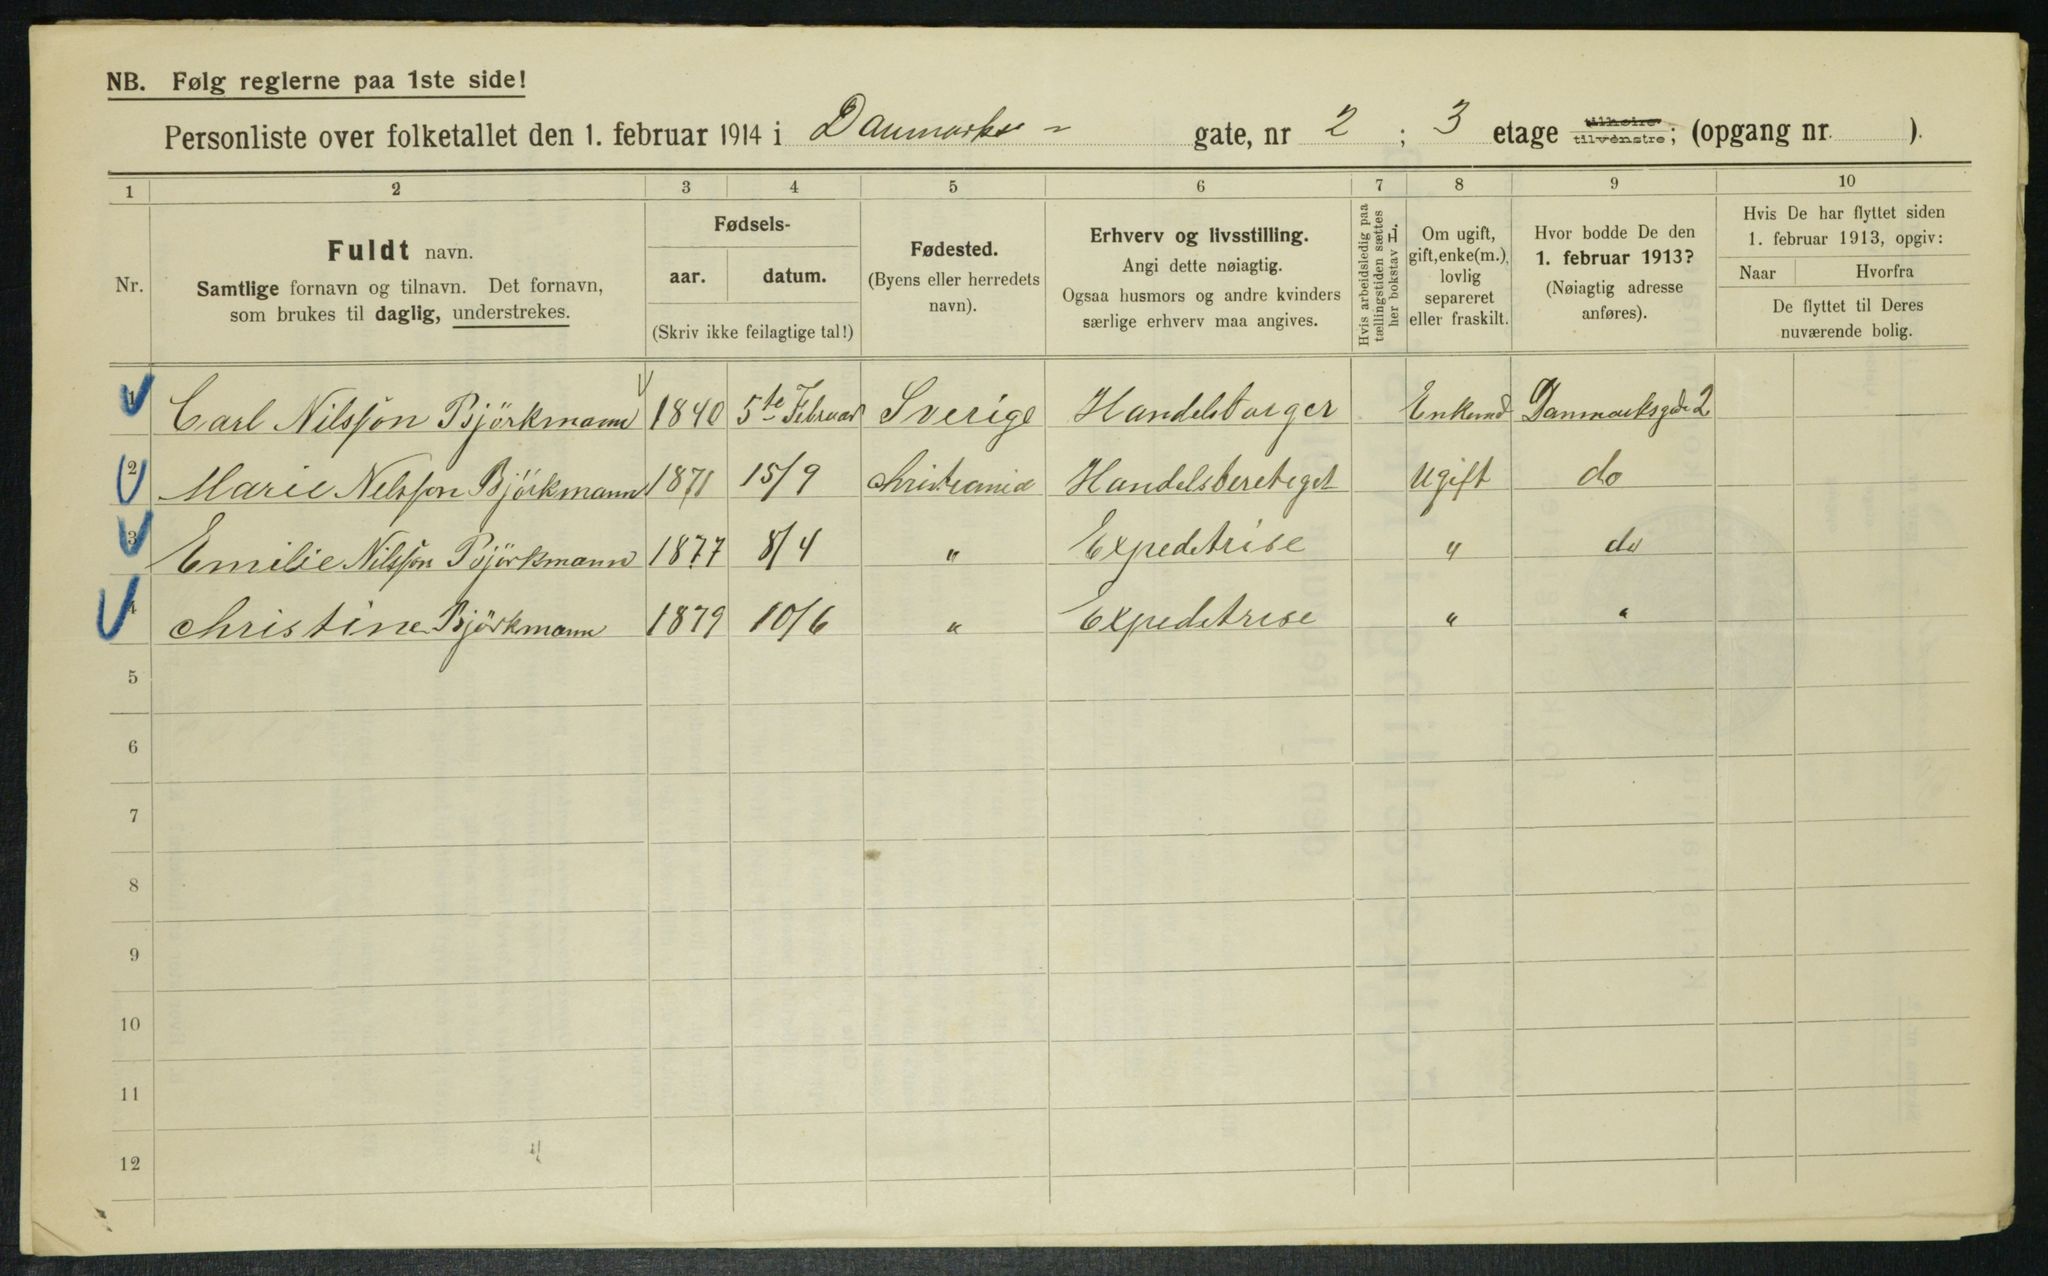 NB. Følg reglerne paa 1ste side!
Personliste over folketallet den 1. februar 1914 i Danmarks- gate, nr 2; 3 etage tilhøire tilvenstre; (opgang nr. ).
1 2 3 4 5 6 7 8 9 10
Nr.
Fuldt navn.
Samtlige fornavn og tilnavn. Det fornavn,
som brukes til daglig, understrekes.
Fødsels-
aar. datum.
(Skriv ikke feilagtige tal!)
Fødested.
(Byens eller herredets
navn).
Erhverv og livsstilling.
Angi dette nøiagtig.
Ogsaa husmors og andre kvinders
særlige erhverv maa angives.
Hvis arbeidsledig paa
tællingstiden sættes
her bokstav L
Om ugift,
gift, enke(m.),
lovlig
separeret
eller fraskilt.
Hvor bodde De den
1. februar 1913?
(Nøiagtig adresse
anføres).
Hvis De har flyttet siden
1. februar 1913, opgiv:
Naar Hvorfra
De flyttet til Deres
nuværende bolig.
1 Carl Nilsson Björkmann 1840 5te Februar Sverige Handelsborger Enkemd Danmarksgade 2
2 Marie Nilsson Björkmann 1871 15/9 Christiania Handelsberetiget Ugift do
3 Emilie Nilsson Björkmann 1877 8/4 " Expeditrise " do
4 Christine Björkmann 1879 10/6 " Expeditrise " "
5
6
7
8
9
10
11
12